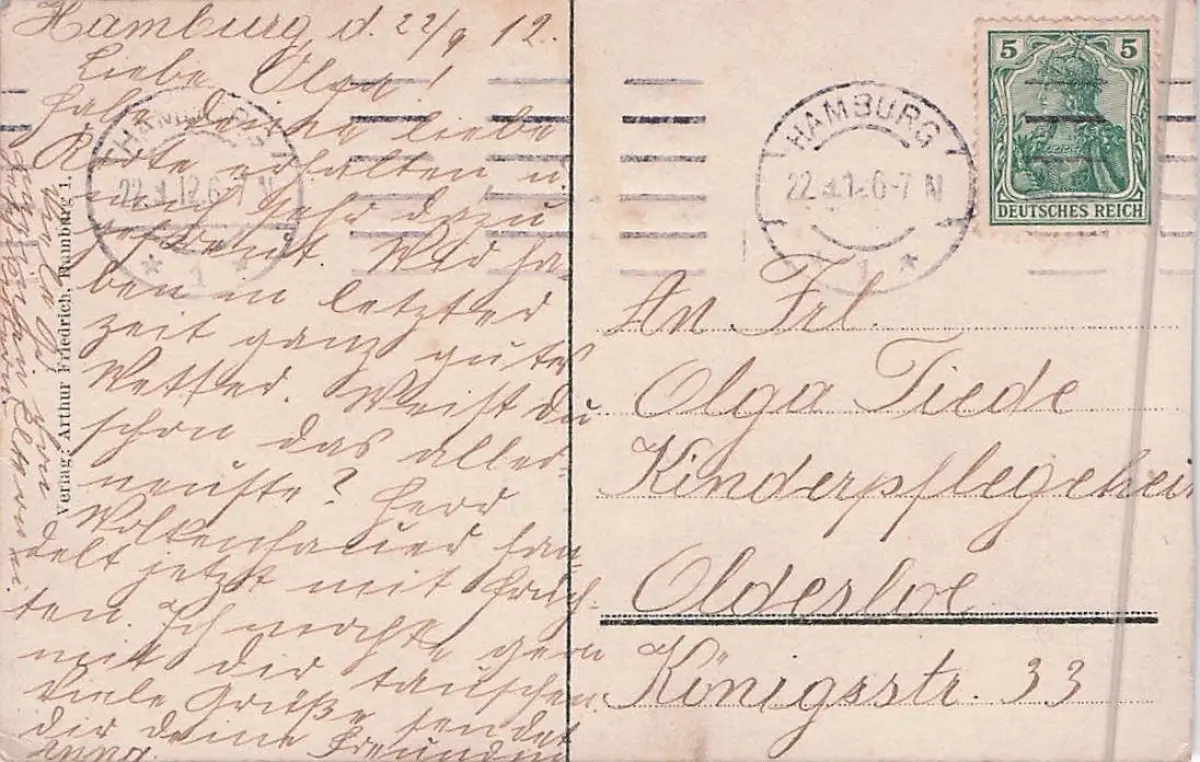 Hamburg d. 22/9 12.
Liebe Olga!
habe deine liebe
Karte erhalten u.
mich sehr dazu
gefreut. Wir ha-
ben in letzter
zeit ganz gutes
Wetter. Weist du
schon das aller-
neuste? Herr
Wolkenhauer han-
delt jetzt mit Früch-
ten. Ich möchte gern
mit dir tauschen.
Viele Grüße sendet
dir deine Freundin
Anna.
Verlag: Arthur Friedrich, Hamburg 1.
HAMBURG
22.9.12.6-7 N
* 1 *
HAMBURG
22.9.12.6-7 N
1 *
5 5
DEUTSCHES REICH
An Frl.
Olga Tiede
Kinderpflegeheim
Oldesloe
Königsstr. 33